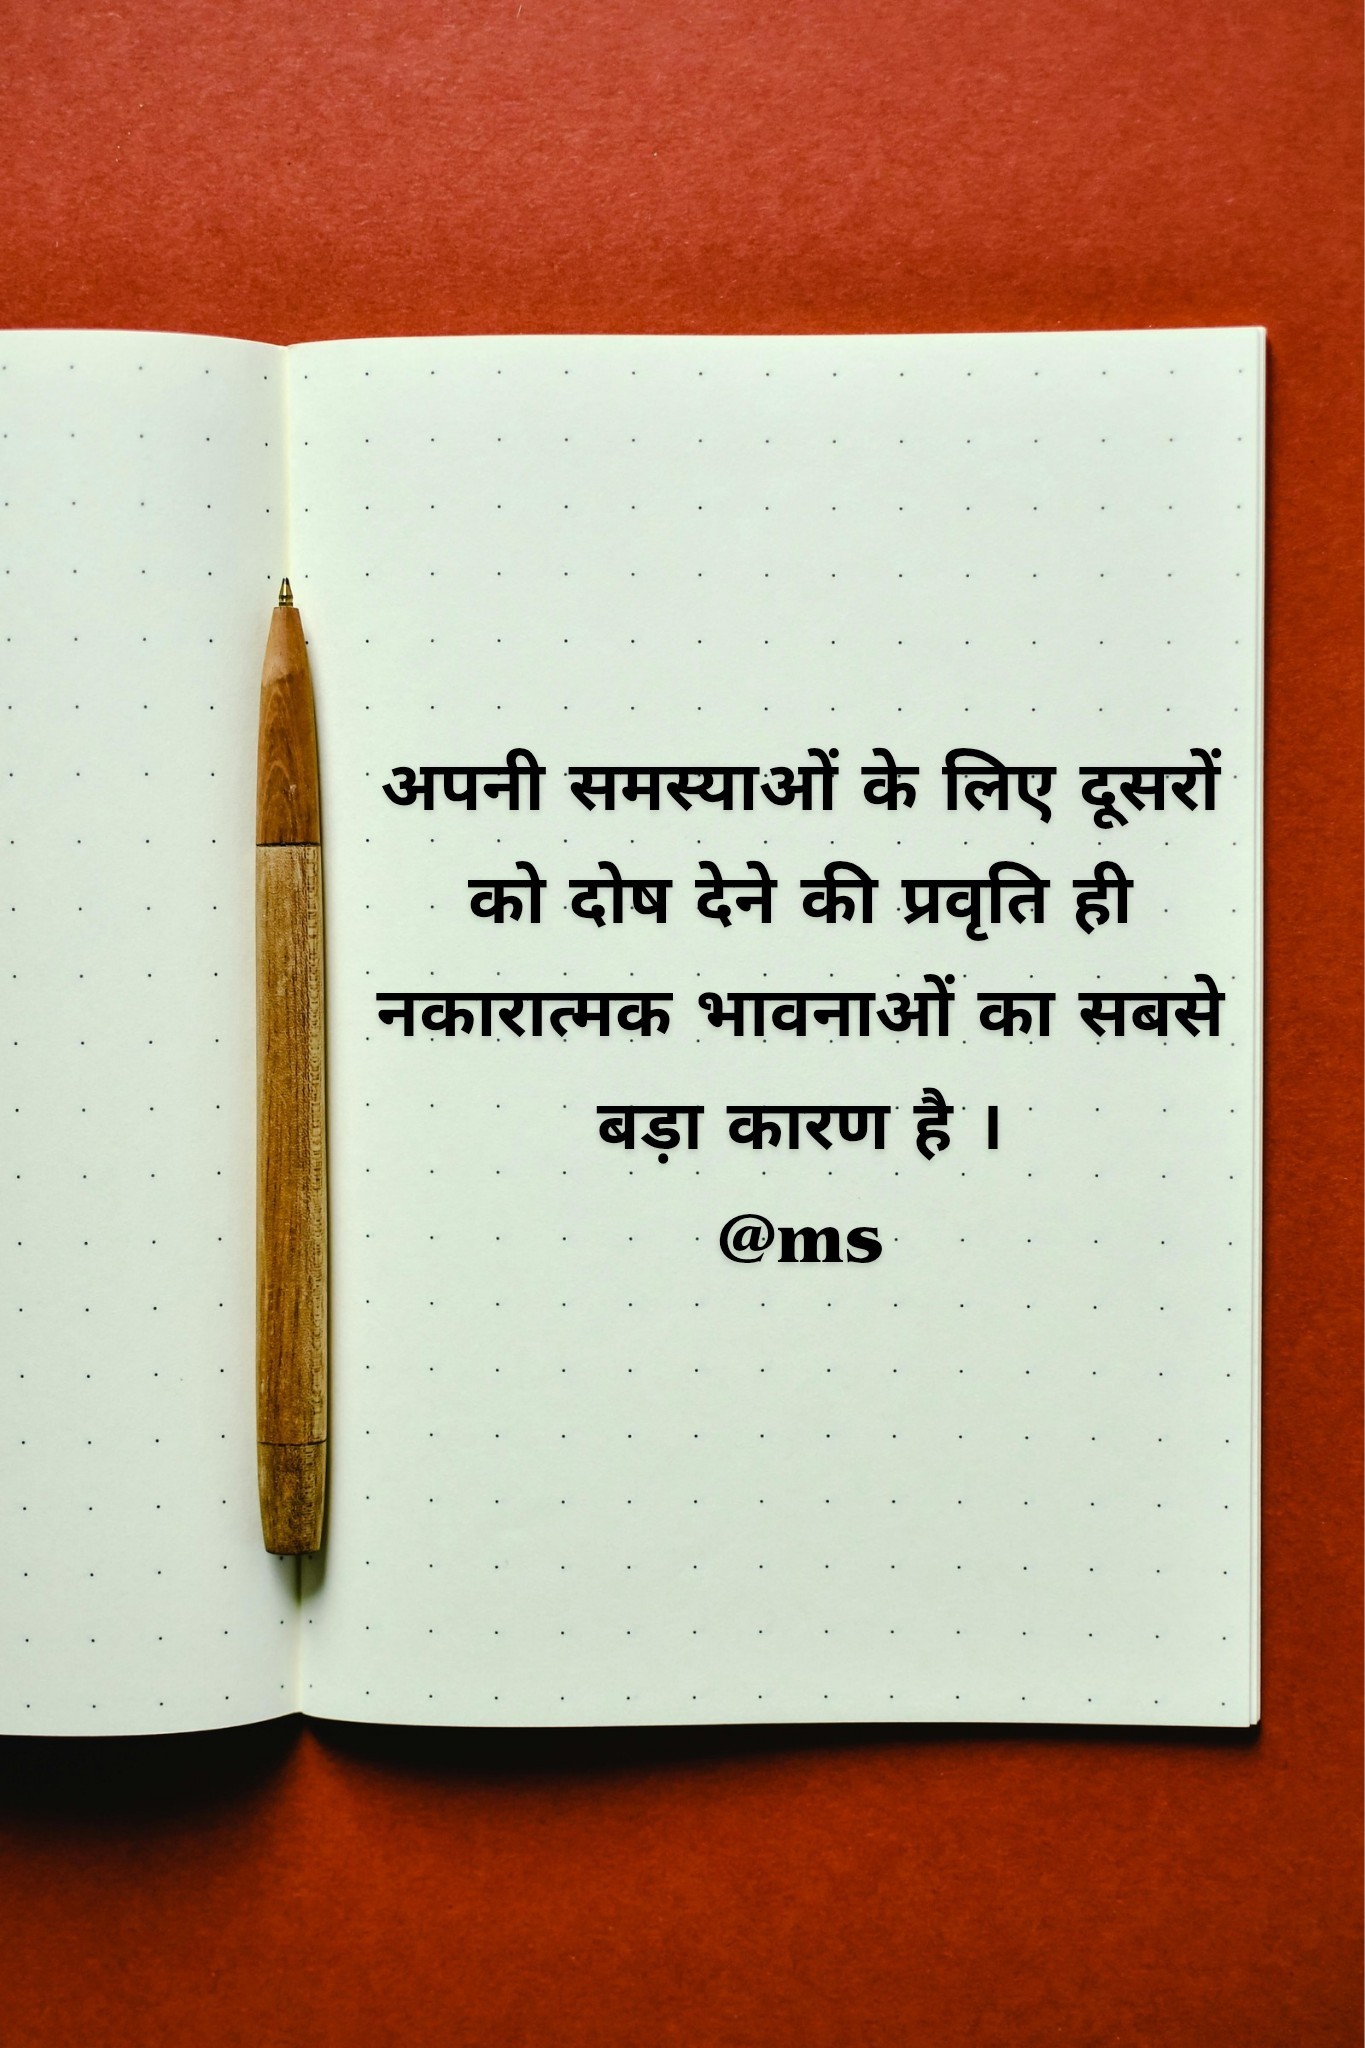 अपनी समस्याओं के लिए दूसरों
को दोष देने की प्रवृति ही
नकारात्मक भावनाओं का सबसे
बड़ा कारण है ।
@ms